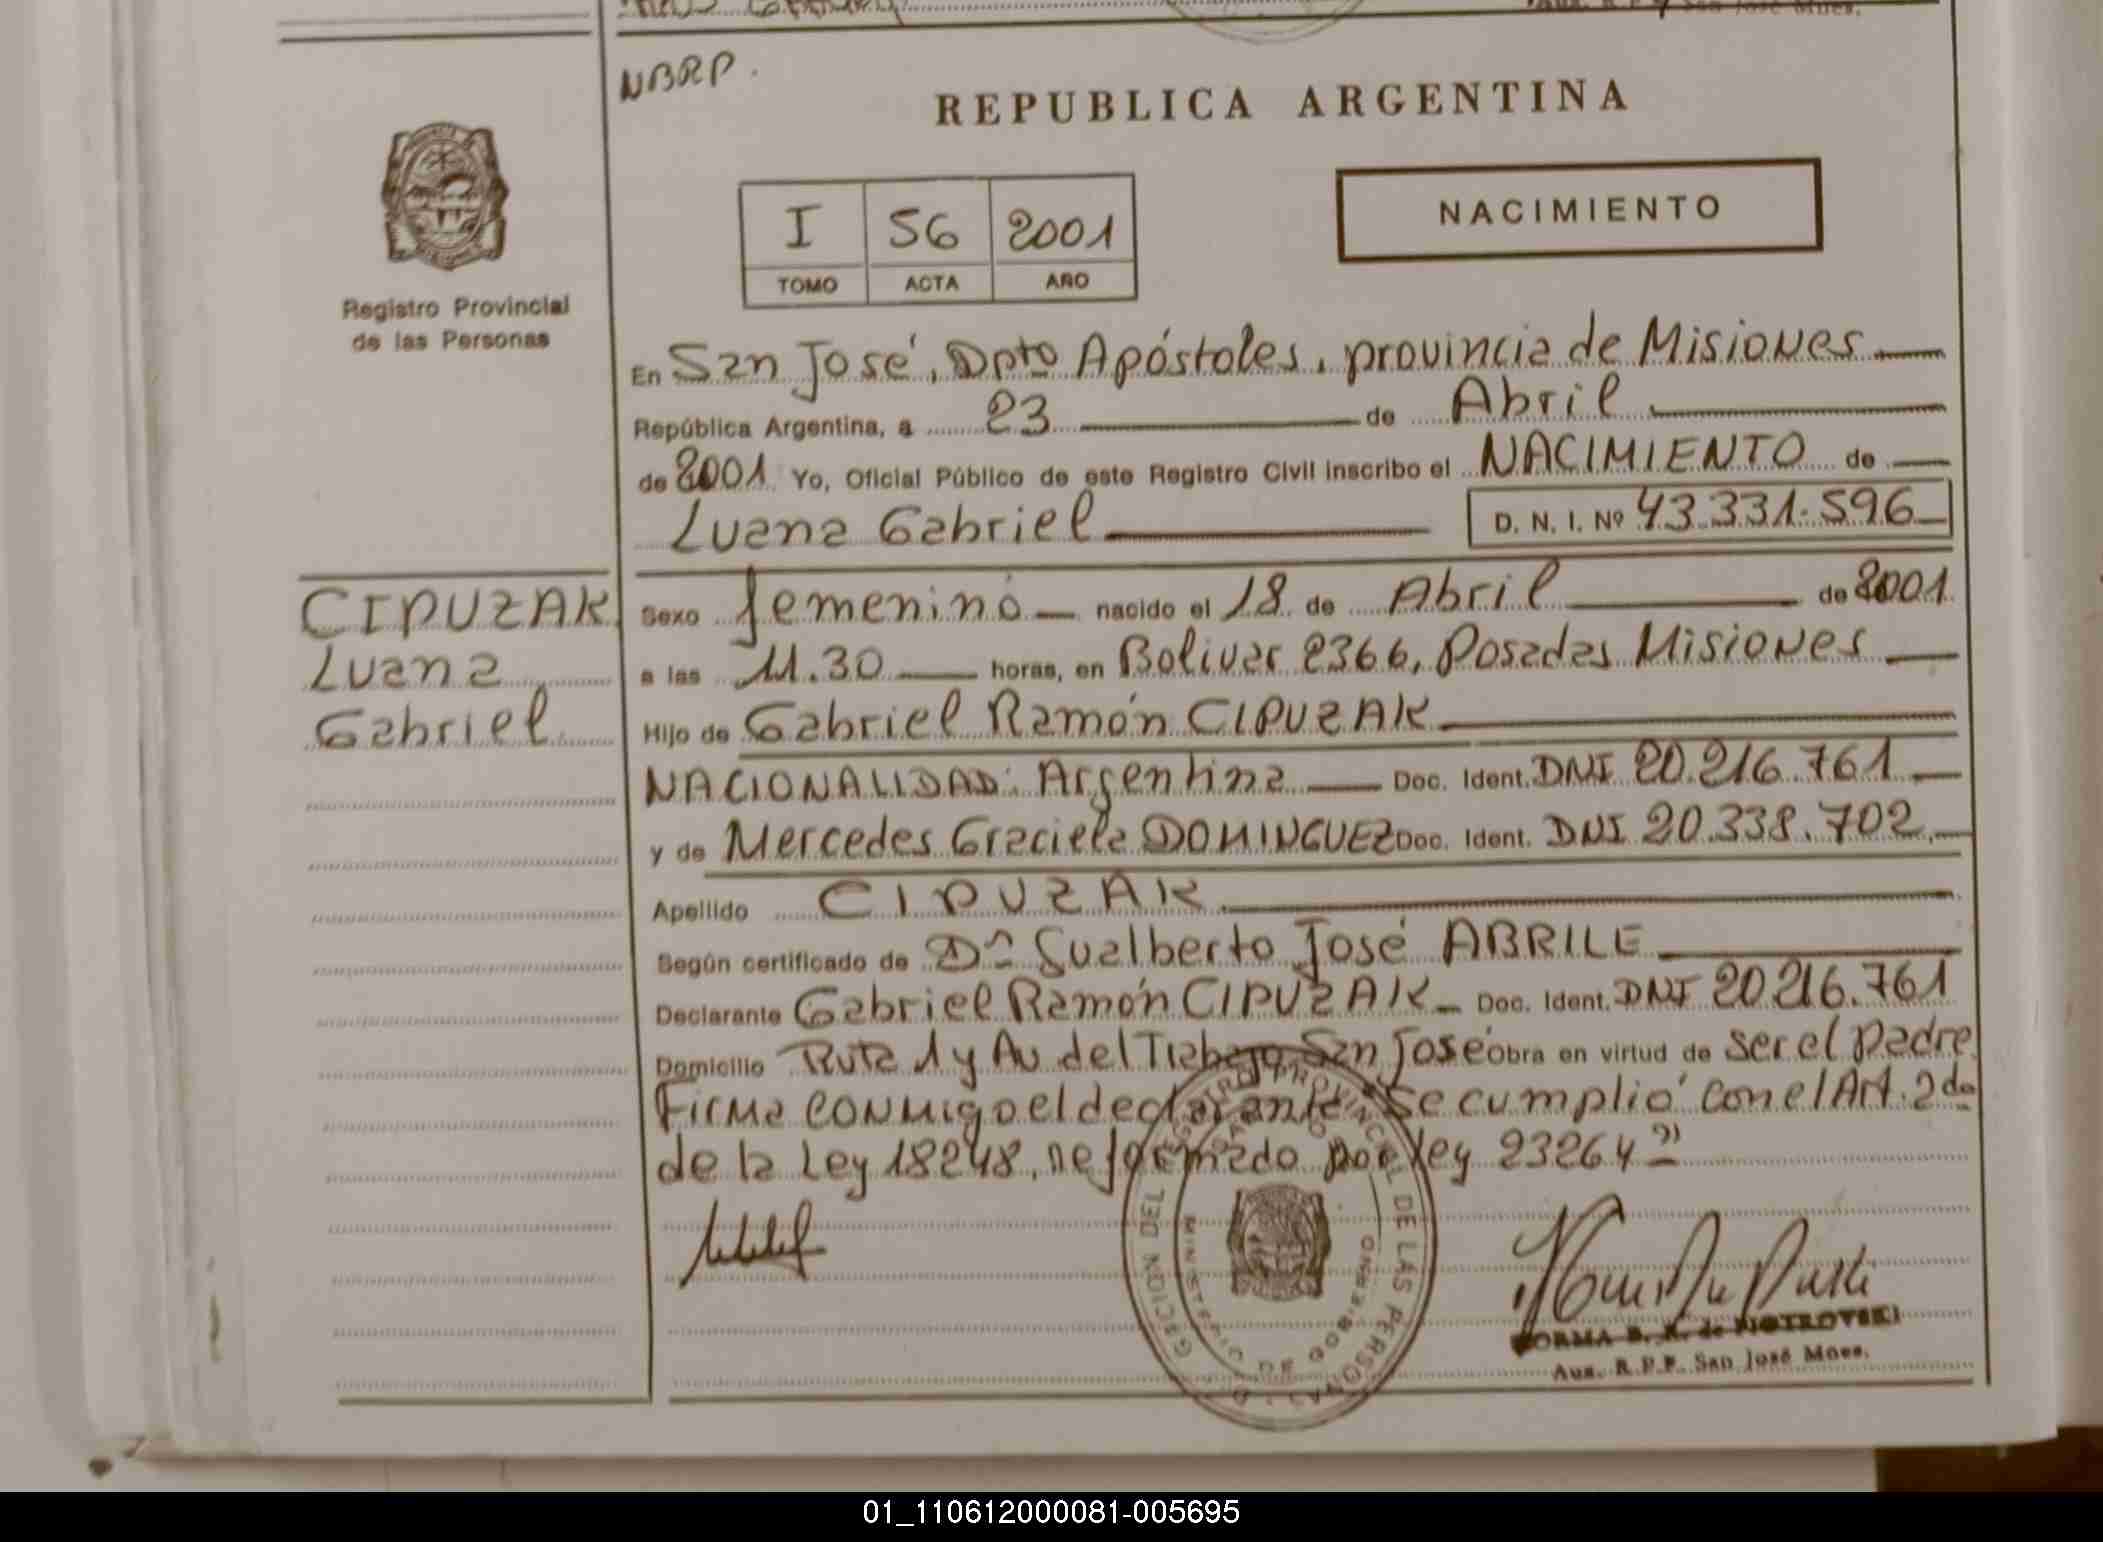 NBRP.
REPUBLICA ARGENTINA
I 56 2001
TOMO ACTA AÑO
NACIMIENTO
Registro Provincial
de las Personas
En San José, Dpto Apóstoles, provincia de Misiones
República Argentina, a 23 de Abril
de 2001 Yo, Oficial Público de este Registro Civil inscribo el NACIMIENTO de
Luana Gabriel D. N. I. Nº 43.331.596
CIPUZAK
Luana
Gabriel
Sexo femenino nacido el 18 de Abril de 2001
a las 11.30 horas, en Bolivar 2366, Posadas Misiones
Hijo de Gabriel Ramón CIPUZAK
NACIONALIDAD: Argentina Doc. Ident. DNI 20.216.761
y de Mercedes Graciela DOMINGUEZ Doc. Ident. DNI 20.338.702
Apellido CIPUZAK
Según certificado de Dn Gualberto José ABRILE
Declarante Gabriel Ramón CIPUZAK Doc. Ident. DNI 20216.761
Domicilio Ruta 1 y Av del Trabajo San José obra en virtud de ser el padre
Firma conmigo el declarante "Se cumplió con el Art. 2do
de la Ley 18248, reformado por ley 23264"
DEL REGISTRO PROVINCIAL DE LAS PERSONAS
MINISTERIO DE GOBIERNO
NORMA B. R. de PIOTROVSKI
Aux. R.P.P. San José Mnes.
01_110612000081-005695